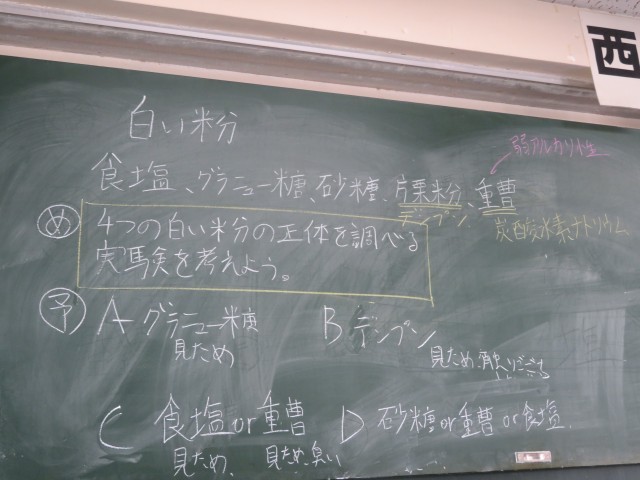 西
白い粉
弱アルカリ性
食塩、グラニュー糖、砂糖、片栗粉、重曹
デンプン 炭酸水素ナトリウム
め 4つの白い粉の正体を調べる
実験を考えよう。
予 A グラニュー糖 B デンプン
見ため 見ため、触りごこち
C 食塩or重曹 D 砂糖or重曹or食塩.
見ため、 見ため、臭い